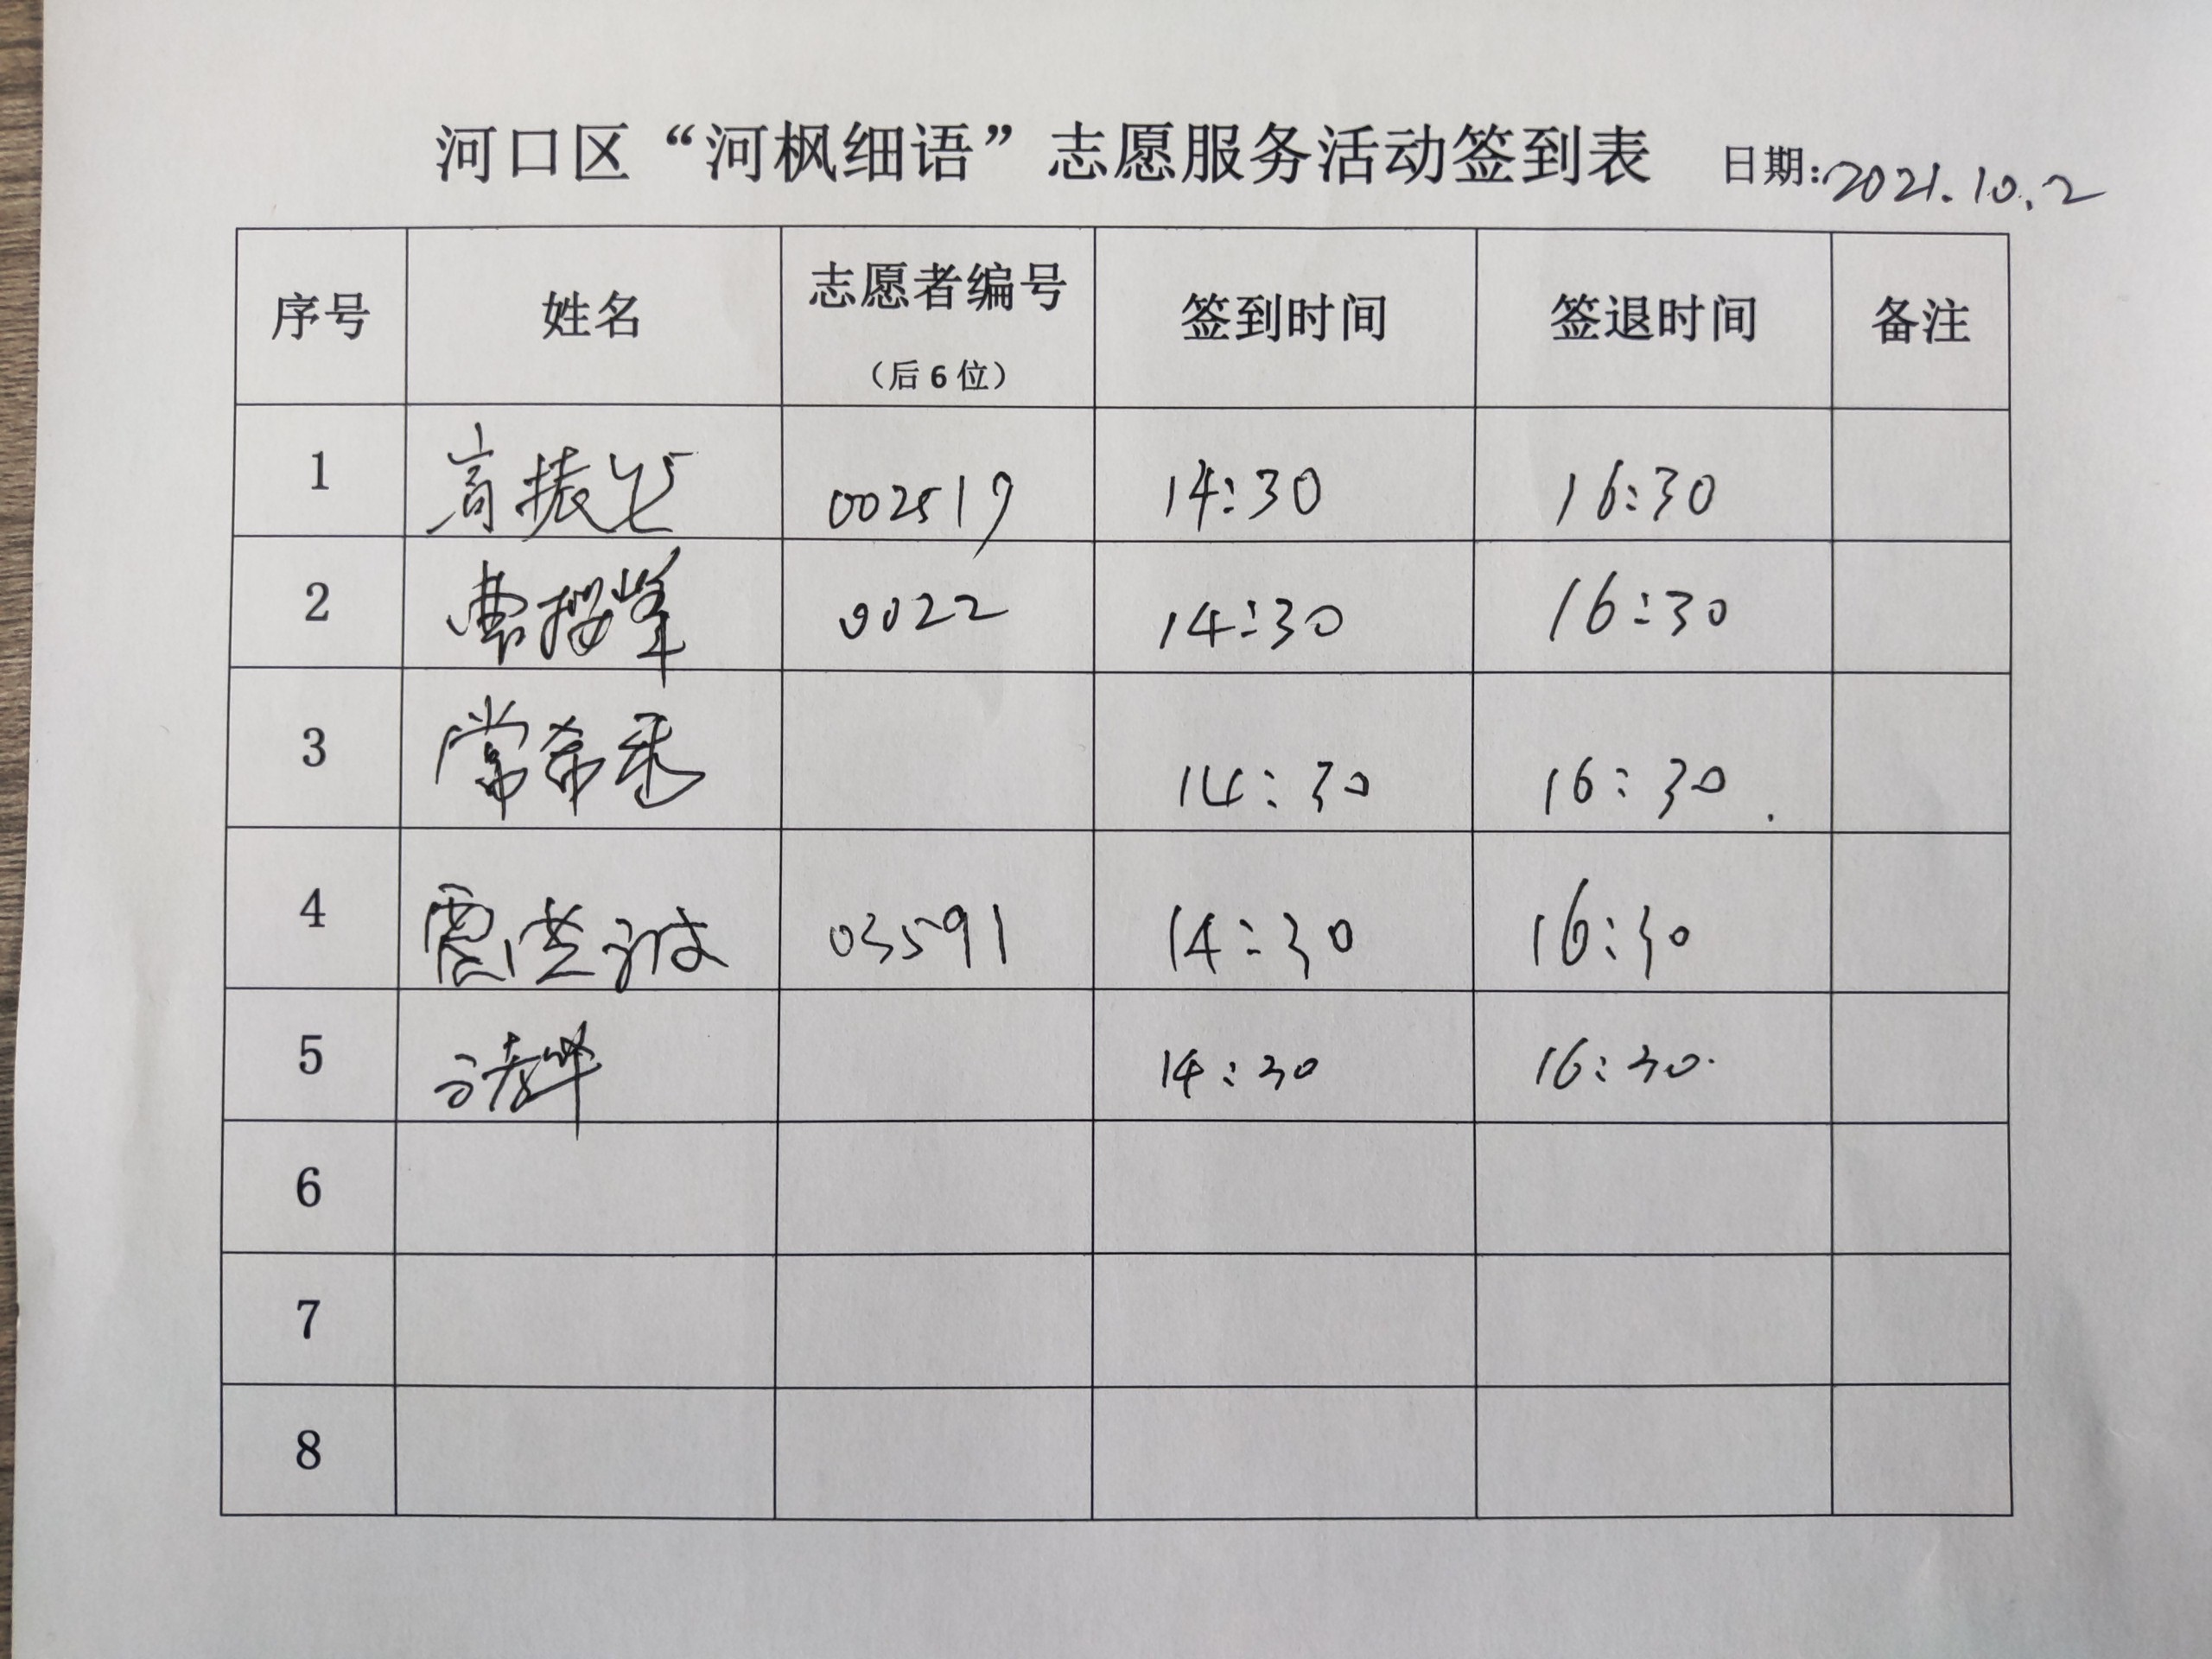 河口区“河枫细语”志愿服务活动签到表 日期:2021.10.2
序号 姓名 志愿者编号 签到时间 签退时间 备注
（后6位）
1 002519 14:30 16:30
2 曹 峰 0022 14:30 16:30
3 常希 14:30 16:30.
4 03591 14:30 16:30
5 14:30 16:30.
6
7
8